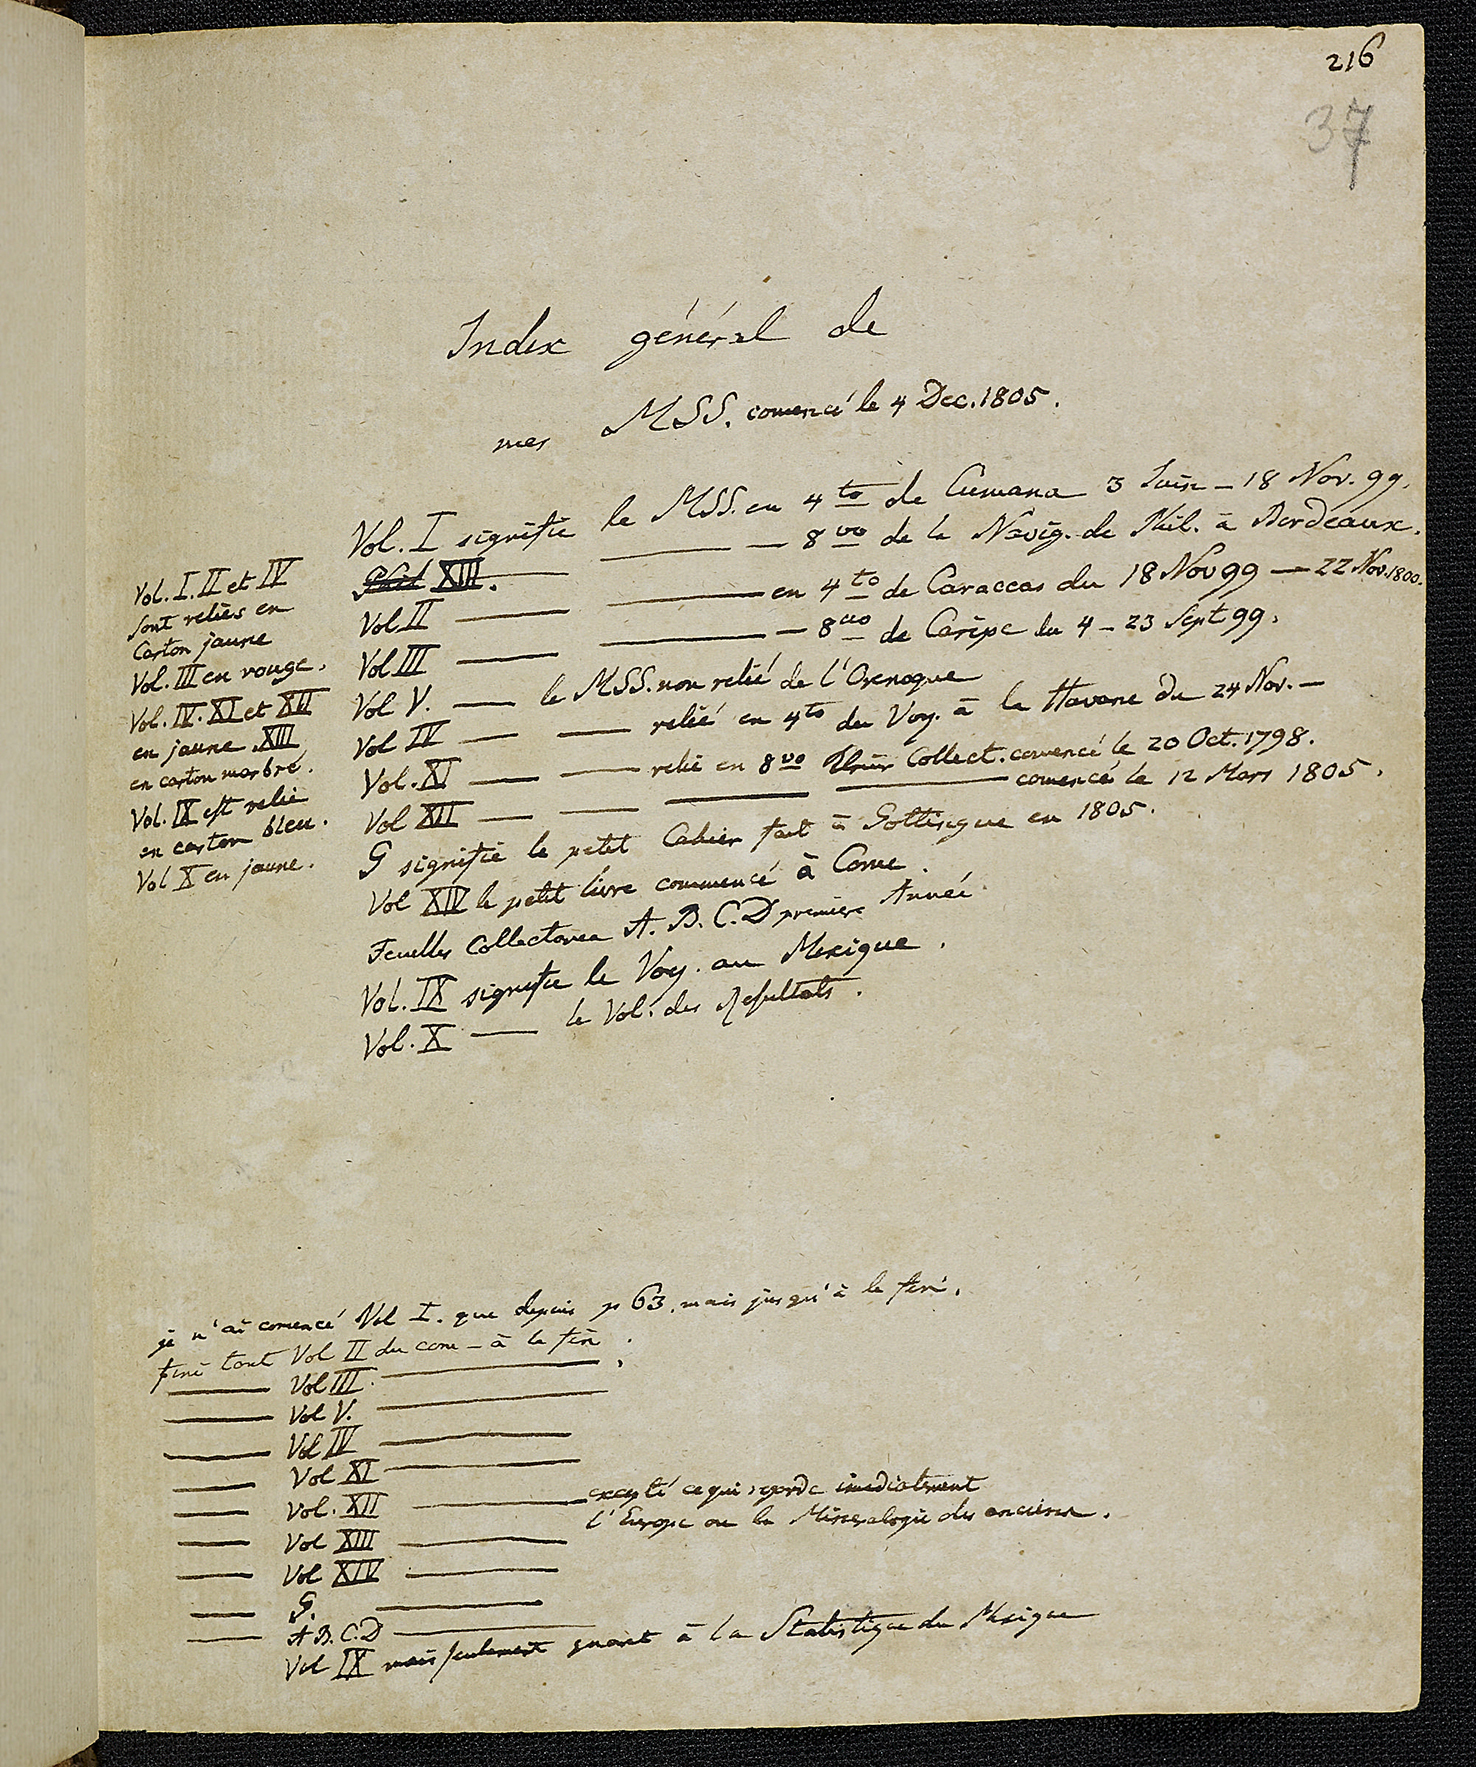 216
37
Index général de
mes MSS. comencé le 4 Dec. 1805.
Vol. I signifie le MSS. en 4to de Cumana 3 Juin – 18 Nov. 99.
XIII. — — 8vo de la Navig. de Phil. à Bordeaux.
Vol II — — en 4to de Caraccas du 18 Nov 99 — 22 Nov. 1800.
Vol III — — 8vo de Caripe du 4 – 23 Sept 99.
Vol V. — le MSS. non relié de l'Orenoque
Vol IV — — relié en 4to du Voy. à la Havane du 24 Nov. –
Vol. XI — — relié en 8vo Collect. comencé le 20 Oct. 1798.
Vol XII — — — — comencé le 12 Mars 1805.
G signifie le petit Cahier fait à Gottingue en 1805.
Vol XIV le petit livre commencé à Come.
Feuilles Collectanea A. B. C. D premiere Année
Vol. IX signifie le Voy. au Mexique.
Vol. X — le Vol. des Resultats.
Vol. I. II et IV
sont reliés en
Carton jaune
Vol. III en rouge.
Vol. IV. XI et XII
en jaune XIII
en carton marbré.
Vol. IX est relié
en carton bleu.
Vol X en jaune.
je n'ai comencé Vol I. que depuis p 63, mais jusqu'à la fin.
fini tout Vol II du com – à la fin.
— Vol III. —
— Vol V. —
— Vol IV —
— Vol XI —
— Vol. XII — excepté ce qui regarde imediatement
l'Europe ou la Mineralogie des anciens.
— Vol XIII —
— Vol XIV —
— G. —
— A B. C. D —
Vol IX mais seulement quant à la Statistique du Mexique